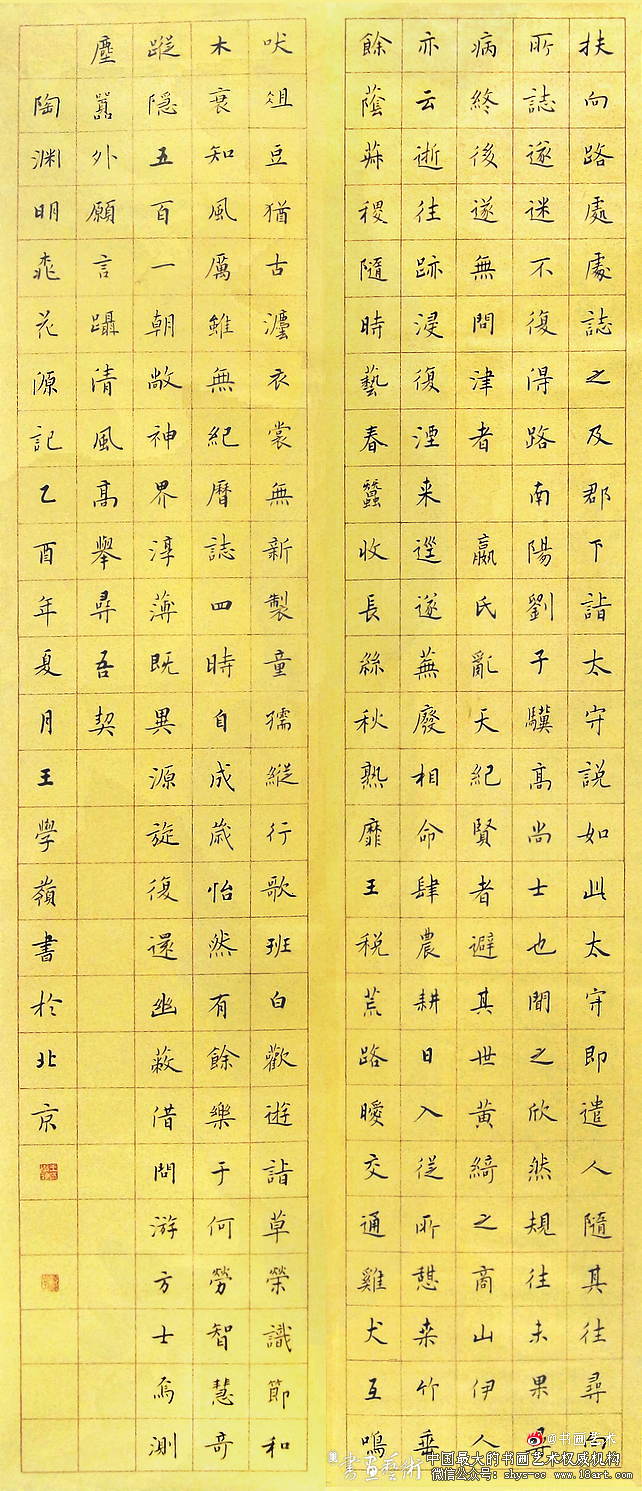 扶向路處處誌之及郡下詣太守説如此太守即遣人隨其往尋向
所誌遂迷不復得路南陽劉子驥高尚士也聞之欣然規往未果尋
病終後遂無問津者 嬴氏亂天紀賢者避其世黃綺之商山伊人
亦云逝往跡浸復湮来逕遂蕪廢相命肆農耕日入從所憇桒竹垂
餘蔭菽稷隨時藝春蠶收長絲秋熟靡王税荒路曖交通雞犬互鳴
吠俎豆猶古灋衣裳無新製童孺縱行歌班白歡遊詣草榮識節和
木衰知風厲雖無紀曆誌四時自成歲怡然有餘樂于何勞智慧奇
蹤隱五百一朝敞神界淳薄既異源旋復還幽蔽借問游方士焉測
塵囂外願言躡清風高舉尋吾契
陶渊明桃花源記乙酉年夏月王學嶺書於北京
@书画艺术
書畫藝術 中国最大的书画艺术权威机构
微信公众号：shys-cc www.18art.com